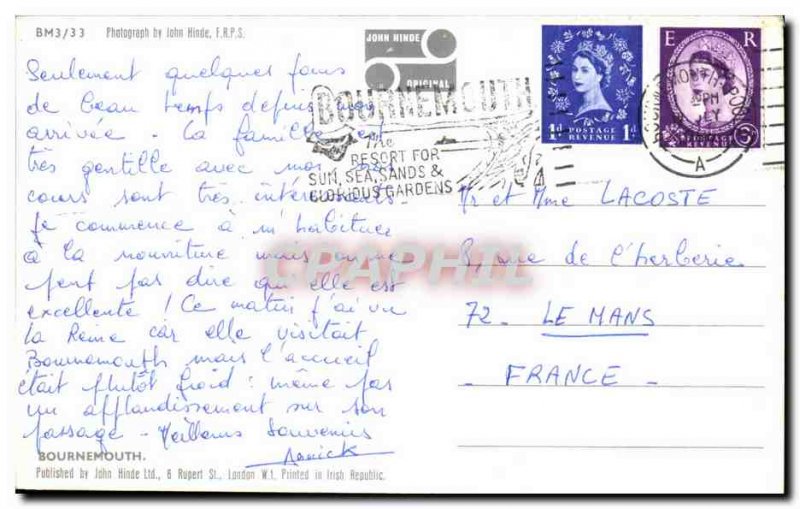 BM3/33 Photograph by John Hinde, F.R.P.S.
JOHN HINDE
ORIGINAL
BOURNEMOUTH
The
RESORT FOR
SUN, SEA, SANDS &
GLORIOUS GARDENS
1d POSTAGE REVENUE 1d
E R
POSTAGE REVENUE
3
PM
A
Seulement quelques jours
de beau temps depuis mon
arrivée - La famille est
très gentille avec moi
cours sont très intéressants
Je commence à m'habituer
à la nourriture mais on ne
peut pas dire qu'elle est
excellente ! Ce matin j'ai vu
la Reine car elle visitait
Bournemouth mais l'accueil
était plutôt froid : même pas
un applaudissement sur son
passage - Meilleurs Souvenirs
Annick
Mr et Mme LACOSTE
8, rue de l'herberie
72 - LE MANS
- FRANCE -
CPAPHIL
BOURNEMOUTH.
Published by John Hinde Ltd., 6 Rupert St., London W.1, Printed in Irish Republic.